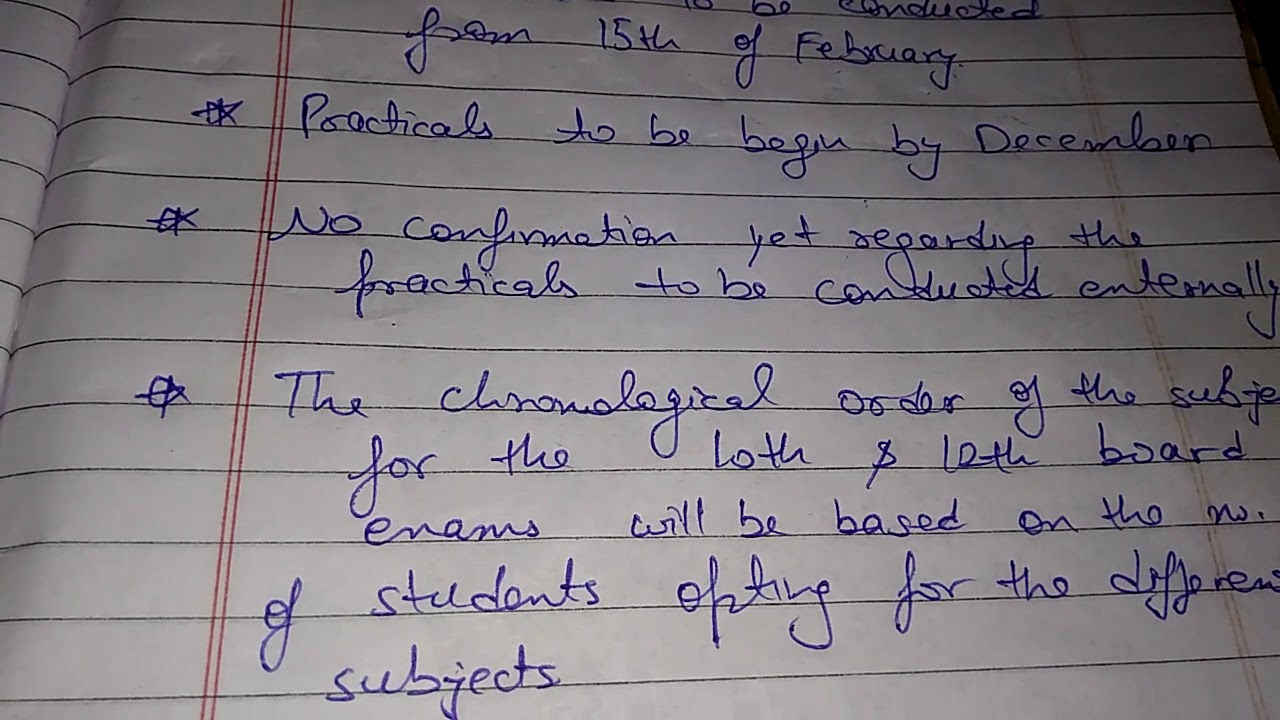 to be conducted
from 15th of February.
* Practicals to be begin by December
* No confirmation yet regarding the
practicals to be conducted externally
* The chronological order of the subje
for the 10th & 12th board
exams will be based on the no.
of students opting for the differen
subjects